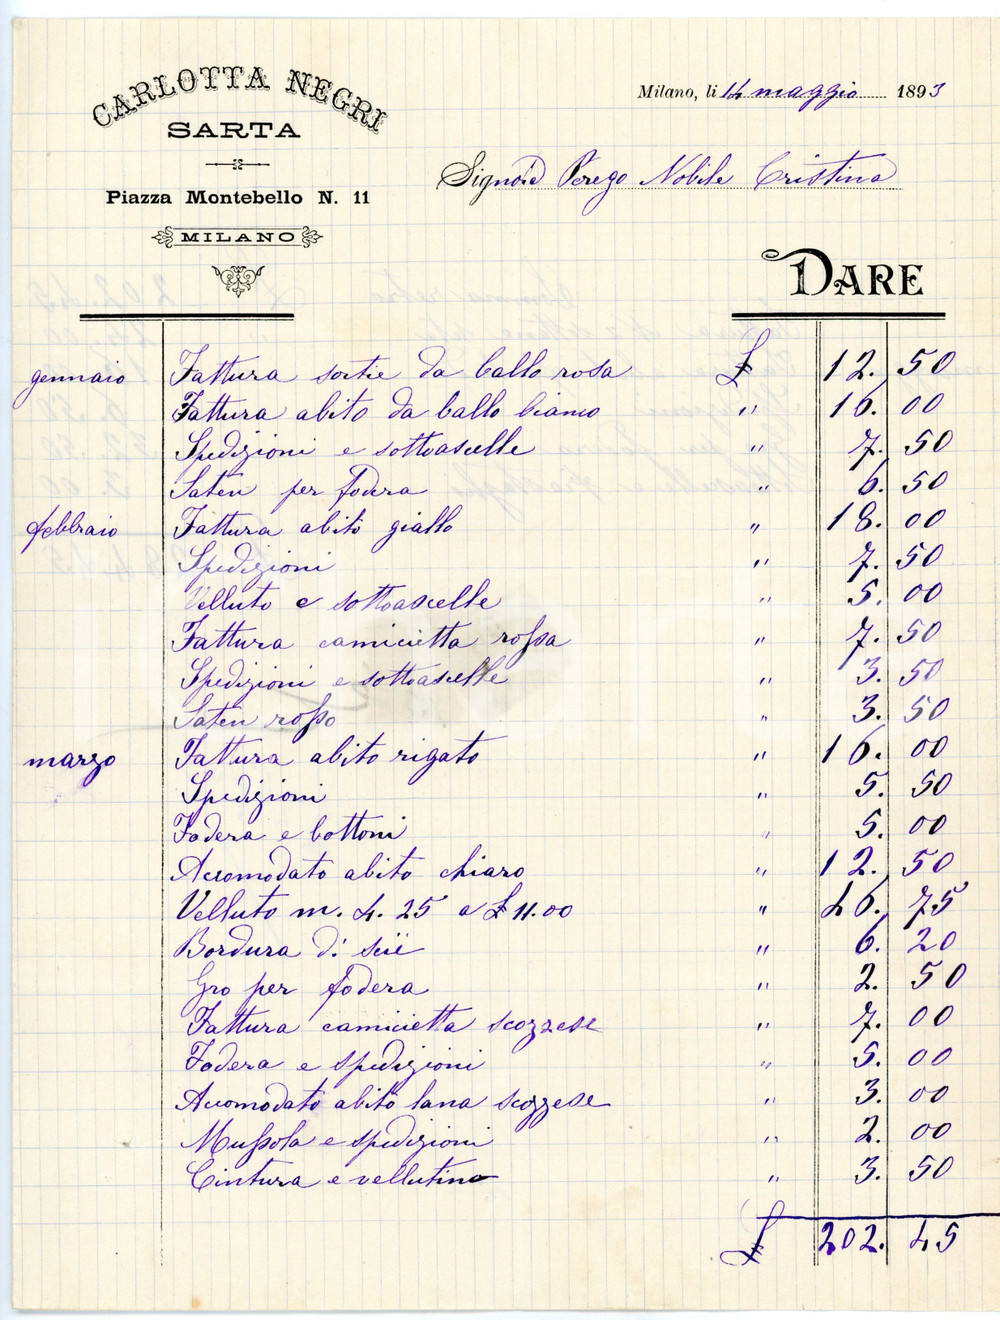 CARLOTTA NEGRI
SARTA
Piazza Montebello N. 11
MILANO
Milano, li 14 maggio 1893
Signora Perego Nobile Cristina
DARE
gennaio Fattura sortie da ballo rosa £ 12. 50
Fattura abito da ballo bianco " 16. 00
Spedizioni e sottoascelle " 7. 50
Satén per fodera " 6. 50
febbraio Fattura abito giallo " 18. 00
Spedizioni " 7. 50
Velluto e sottoascelle " 5. 00
Fattura camicietta rossa " 7. 50
Spedizioni e sottoascelle " 3. 50
Satén rosso " 3. 50
marzo Fattura abito rigato " 16. 00
Spedizioni " 5. 50
Fodera e bottoni " 5. 00
Accomodato abito chiaro " 12. 50
Velluto m. 4. 25 a £ 11.00 " 46. 75
Bordura di " 6. 20
Gro per fodera " 2. 50
Fattura camicietta scozzese " 7. 00
Fodera e spedizioni " 5. 00
Accomodato abito lana scozzese " 3. 00
Mussola e spedizioni " 2. 00
Cintura e vellutino " 3. 50
£ 202. 45